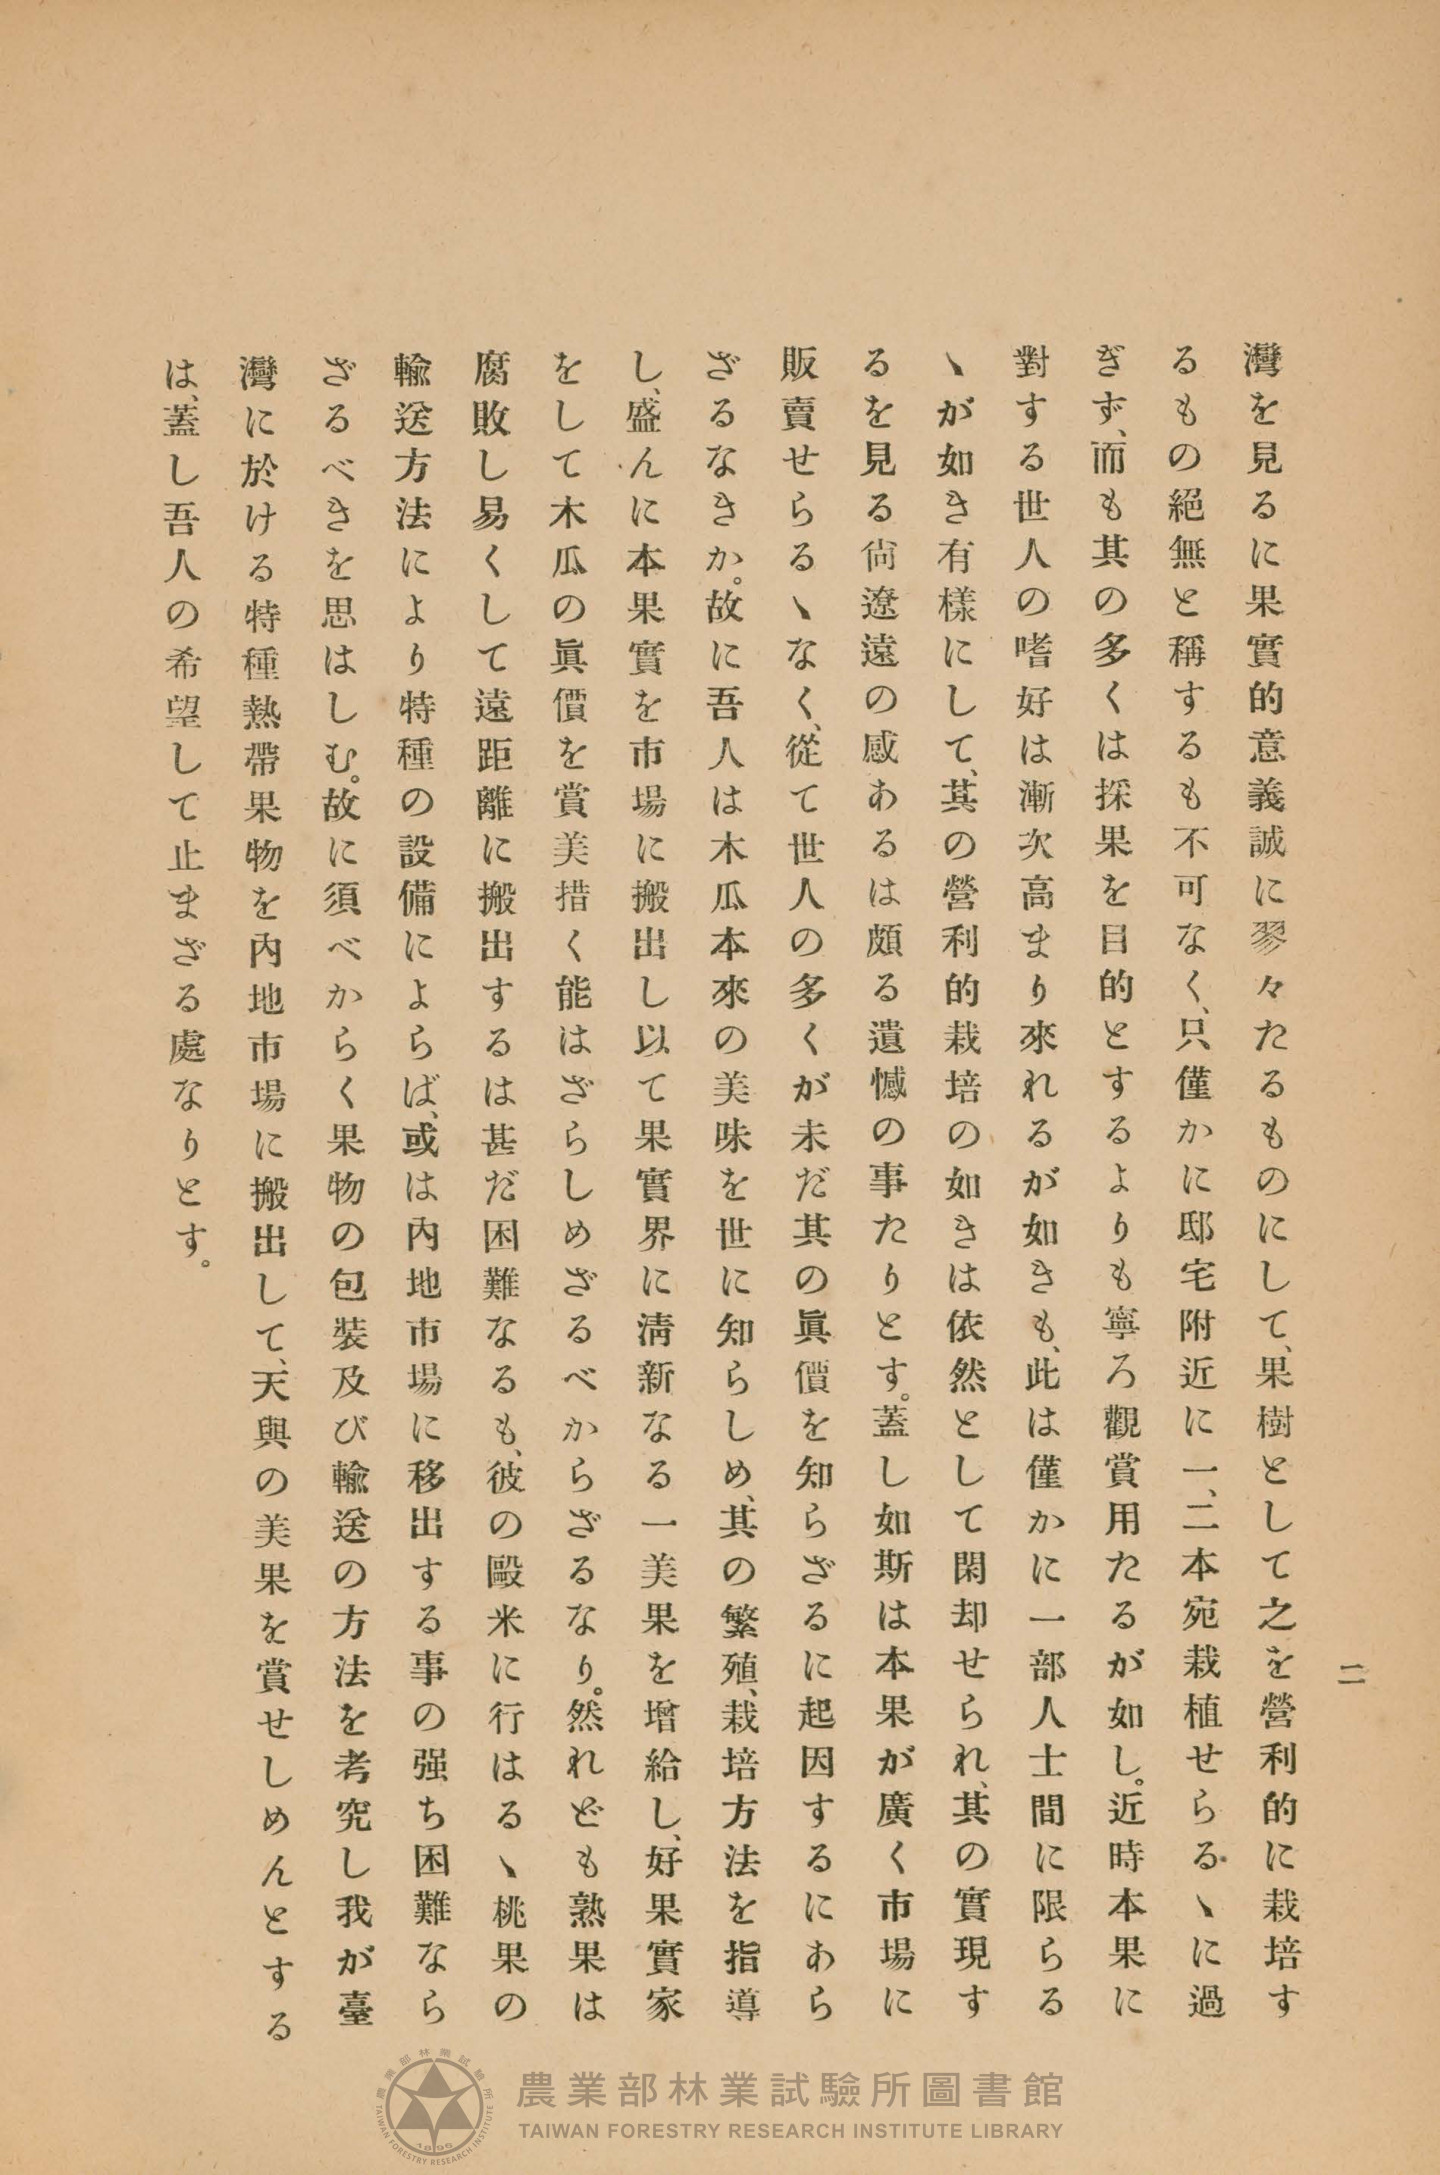 二
灣を見るに果實的意義誠に翏々たるものにして、果樹として之を營利的に栽培す
るもの絕無と稱するも不可なく、只僅かに邸宅附近に一、二本宛栽植せらるヽに過
ぎず、而も其の多くは採果を目的とするよりも寧ろ觀賞用たるが如し。近時本果に
對する世人の嗜好は漸次高まり來れるが如きも、此は僅かに一部人士間に限らる
ヽが如き有樣にして、其の營利的栽培の如きは依然として閑却せられ、其の實現す
るを見る尙遼遠の感あるは頗る遺憾の事たりとす。蓋し如斯は本果が廣く市場に
販賣せらるヽなく、從て世人の多くが未だ其の眞價を知らざるに起因するにあら
ざるなきか。故に吾人は木瓜本來の美味を世に知らしめ、其の繁殖、栽培方法を指導
し、盛んに本果實を市場に搬出し以て果實界に淸新なる一美果を增給し、好果實家
をして木瓜の眞價を賞美措く能はざらしめざるべからざるなり。然れども熟果は
腐敗し易くして遠距離に搬出するは甚だ困難なるも、彼の歐米に行はるヽ桃果の
輸送方法により特種の設備によらば、或は內地市場に移出する事の强ち困難なら
ざるべきを思はしむ。故に須べからく果物の包裝及び輸送の方法を考究し我が臺
灣に於ける特種熱帶果物を內地市場に搬出して、天與の美果を賞せしめんとする
は、蓋し吾人の希望して止まざる處なりとす。
農業部林業試驗所圖書館
TAIWAN FORESTRY RESEARCH INSTITUTE LIBRARY
農業部林業試驗所
TAIWAN FORESTRY RESEARCH INSTITUTE
1896